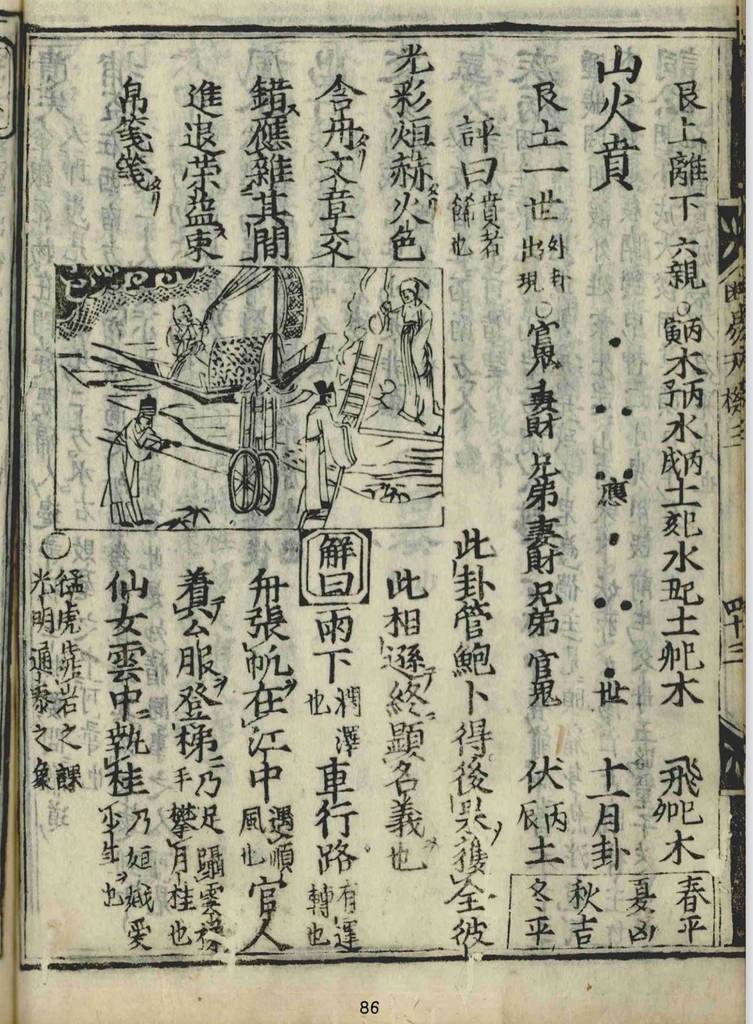 艮上離下 六親○丙寅木丙子水丙戌土己亥水己丑土己卯木 飛己卯木
春平
夏凶
秋吉
冬平
山火賁 應 世 十一月卦
艮土一世 外卦出現○官鬼 妻財 兄弟 妻財 兄弟 官鬼 伏丙辰土
評曰 賁者飾也
此卦管鮑卜得後果獲全彼
光彩烜赫火色
此相遜終顯名義也
含丹文章交
解曰 雨下 潤澤也 車行路 有運轉也
錯應雜其間
舟張帆在江中 遇順風也 官人
進退榮益束
着公服登梯 乃足躡雲梯手攀月桂也
帛箋箋
仙女雲中執桂 乃姮娥愛少年也
○猛虎靠岩之課
光明通泰之象
四十三
86